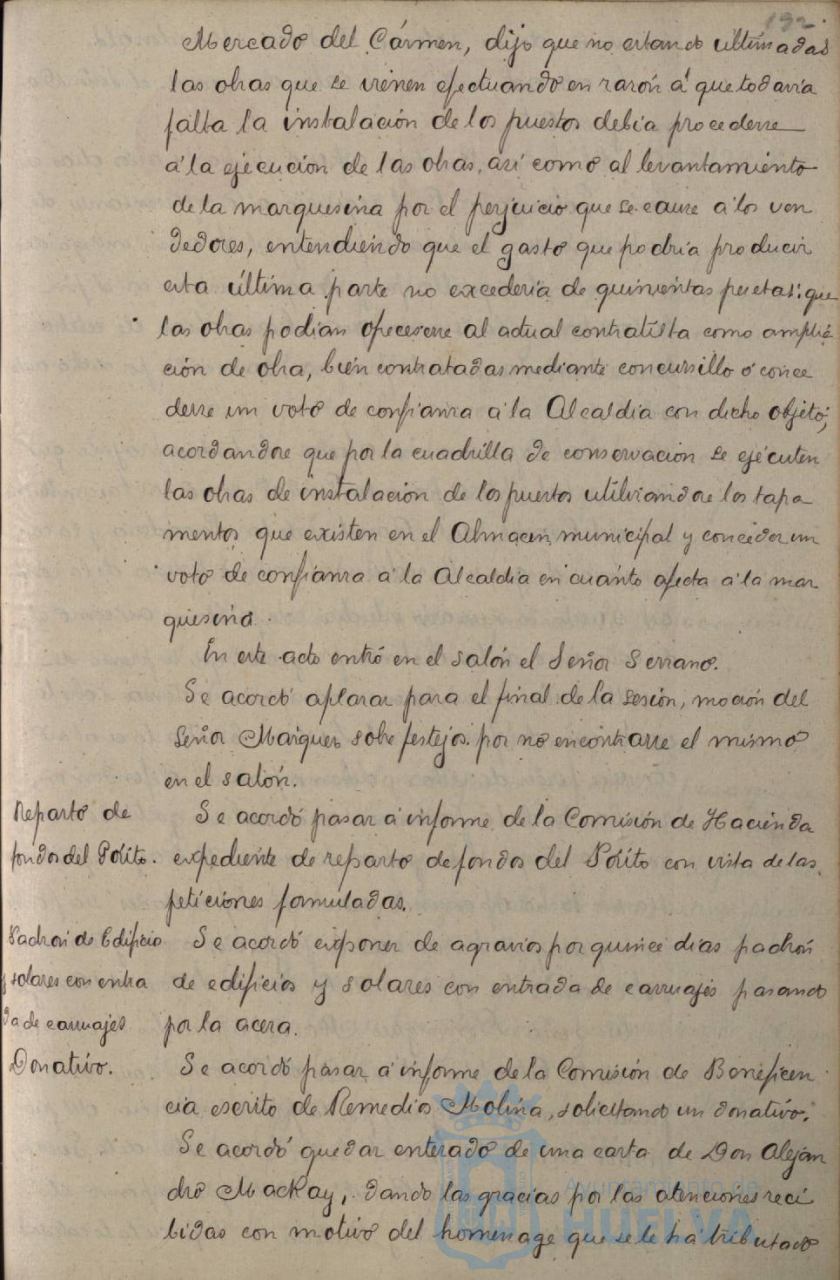 192
Mercado del Cármen, dijo que no estando últimadas
las obras que se vienen efectuando en razón á que todavía
falta la instalación de los puestos debia procederse
á la ejecución de las obras, así como al levantamiento
de la marquesina por el perjuicio que se cause a los ven
dedores, entendiendo que el gasto que podria producir
esta última parte no excederia de quinientas pesetas: que
las obras podian ofrecerse al actual contratista como amplia
ción de obra, bien contratadas mediante concursillo ó conce
derse un voto de confianza a la Alcaldia con dicho objeto,
acordandose que por la cuadrilla de conservacion se ejecuten
las obras de instalación de los puestos utilizandose los tapa
mentos que existen en el Almacen municipal y conceder un
voto de confianza á la Alcaldia en cuanto afecta á la mar
quesina.
En este acto entró en el salón el Señor Serrano.
Se acordó aplazar para el final de la sesión, moción del
Señor Marquez sobre festejos por no encontrarse el mismo
en el salón.
Reparto de
fondos del Pósito.
Se acordó pasar á informe de la Comisión de Hacienda
expediente de reparto de fondos del Pósito con vista de las
peticiones formuladas.
Padron de Edificio
y solares con entra
da de carruajes
Se acordó exponer de agravios por quince dias padrón
de edificios y solares con entrada de carruajes pasando
por la acera.
Donativo.
Se acordó pasar a informe de la Comisión de Beneficen
cia escrito de Remedios Molina, solicitando un donativo.
Se acordó quedar enterado de una carta de Don Alejan
dro Mackay, dando las gracias por las atenciones reci
bidas con motivo del homenage que se le ha tributado
Ayuntamiento de
HUELVA